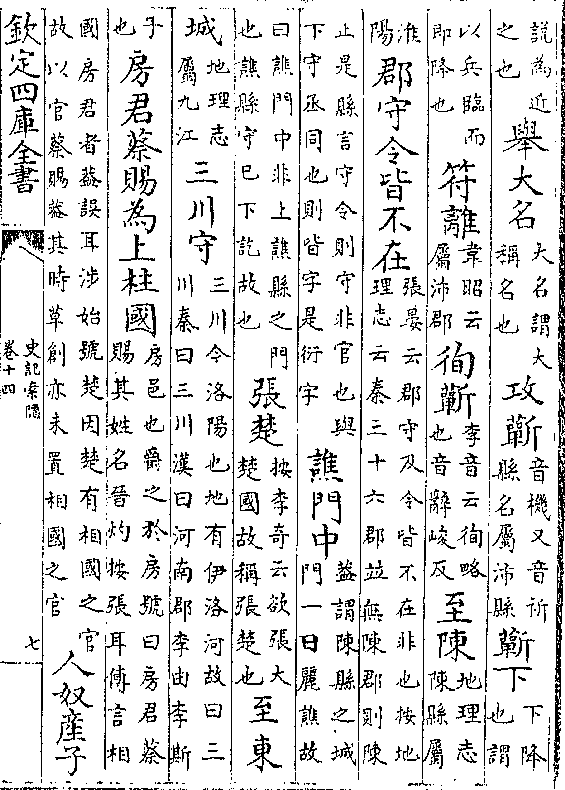 說為近之也舉大名大名謂大稱名也攻蘄音機又音祈縣名屬沛縣蘄下下降也謂
以兵臨而即降也符離韋昭云屬沛郡徇蘄李音云徇略也音辭峻反至陳地理志陳縣屬
淮陽郡守令皆不在張晏云郡守及令皆不在非也按地理志云秦三十六郡並無陳郡則陳
止是縣言守令則守非官也與下守丞同也則皆字是衍字譙門中蓋謂陳縣之城門一曰麗譙故
曰譙門中非上譙縣之門也譙縣守已下訖故也張楚按李奇云欲張大楚國故稱張楚也至東
城地理志屬九江三川守三川今洛陽也地有伊洛河故曰三川秦曰三川漢曰河南郡李由李斯
子也房君蔡賜為上柱國房邑也爵之於房號曰房君蔡賜其姓名晉灼按張耳傳言相
國房君者蓋誤耳涉始號楚因楚有相國之官故以官蔡賜蓋其時草創亦未置相國之官人奴產子
欽定四庫全書
史記索隱
卷十四
七